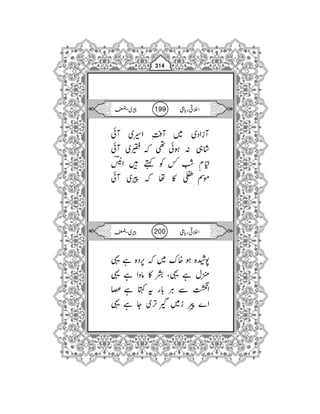 314
اخلاقی رباعی 199 پیری و ضعف
آزادی میں آفت اسیری آئی
شاہی نہ ہوئی تھی کہ فقیری آئی
ایّام شب کس کو کہتے ہیں انیسؔ
موسم طفلی کا تھا کہ پیری آئی
اخلاقی رباعی 200 پیری و ضعف
پوشیدہ ہو خاک میں کہ پردہ ہے یہی
منزل ہے یہی، بشر کا ماوا ہے یہی
انگشت سے ہر بار یہ کہتا ہے عصا
اے پیر زمیں گیر تری جا ہے یہی